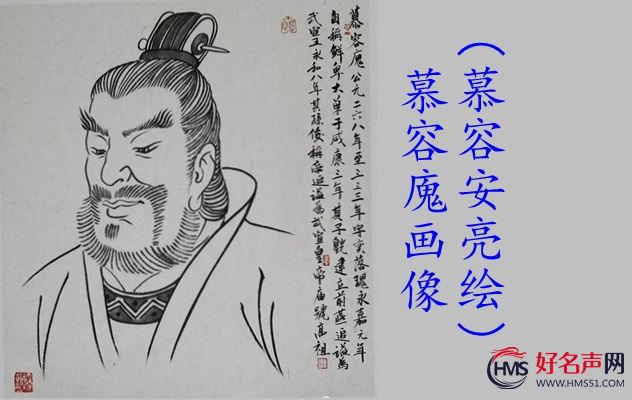 慕容廆公元二六八年至三三三年字奕落瑰永嘉元年
自稱鮮卑大单于咸康三年其子皝建立前燕追谥為
武宣王永和八年其孫俊稱帝追谥為武宣皇帝庙號高祖
（慕容安亮绘）
慕容廆画像
HMS 好名声网
WWW.HMS51.COM